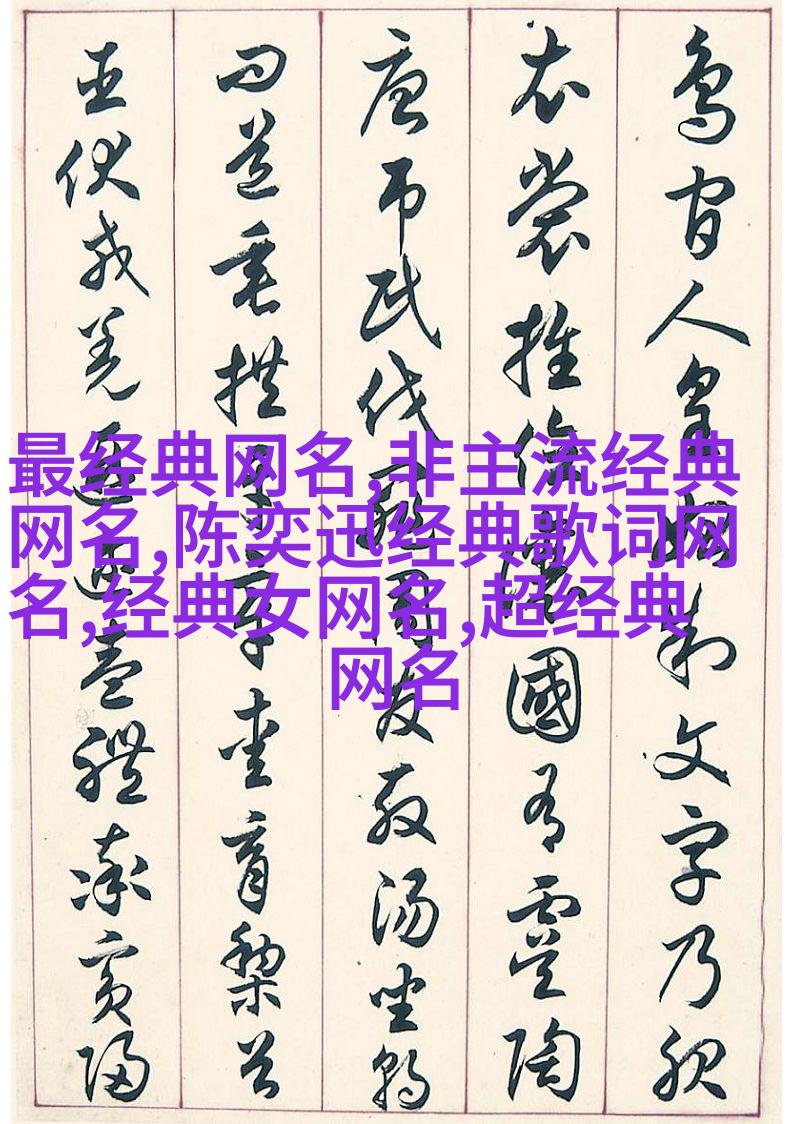 最经典网名,非主流经典
网名,陈奕迅经典歌词网
名,经典女网名,超经典
网名
鳥官人皇始制文字乃服
衣裳推位讓國有虞陶
唐吊民伐罪周發殷湯坐朝
問道垂拱平章愛育黎首
臣伏戎羌遐邇壹體率賓歸